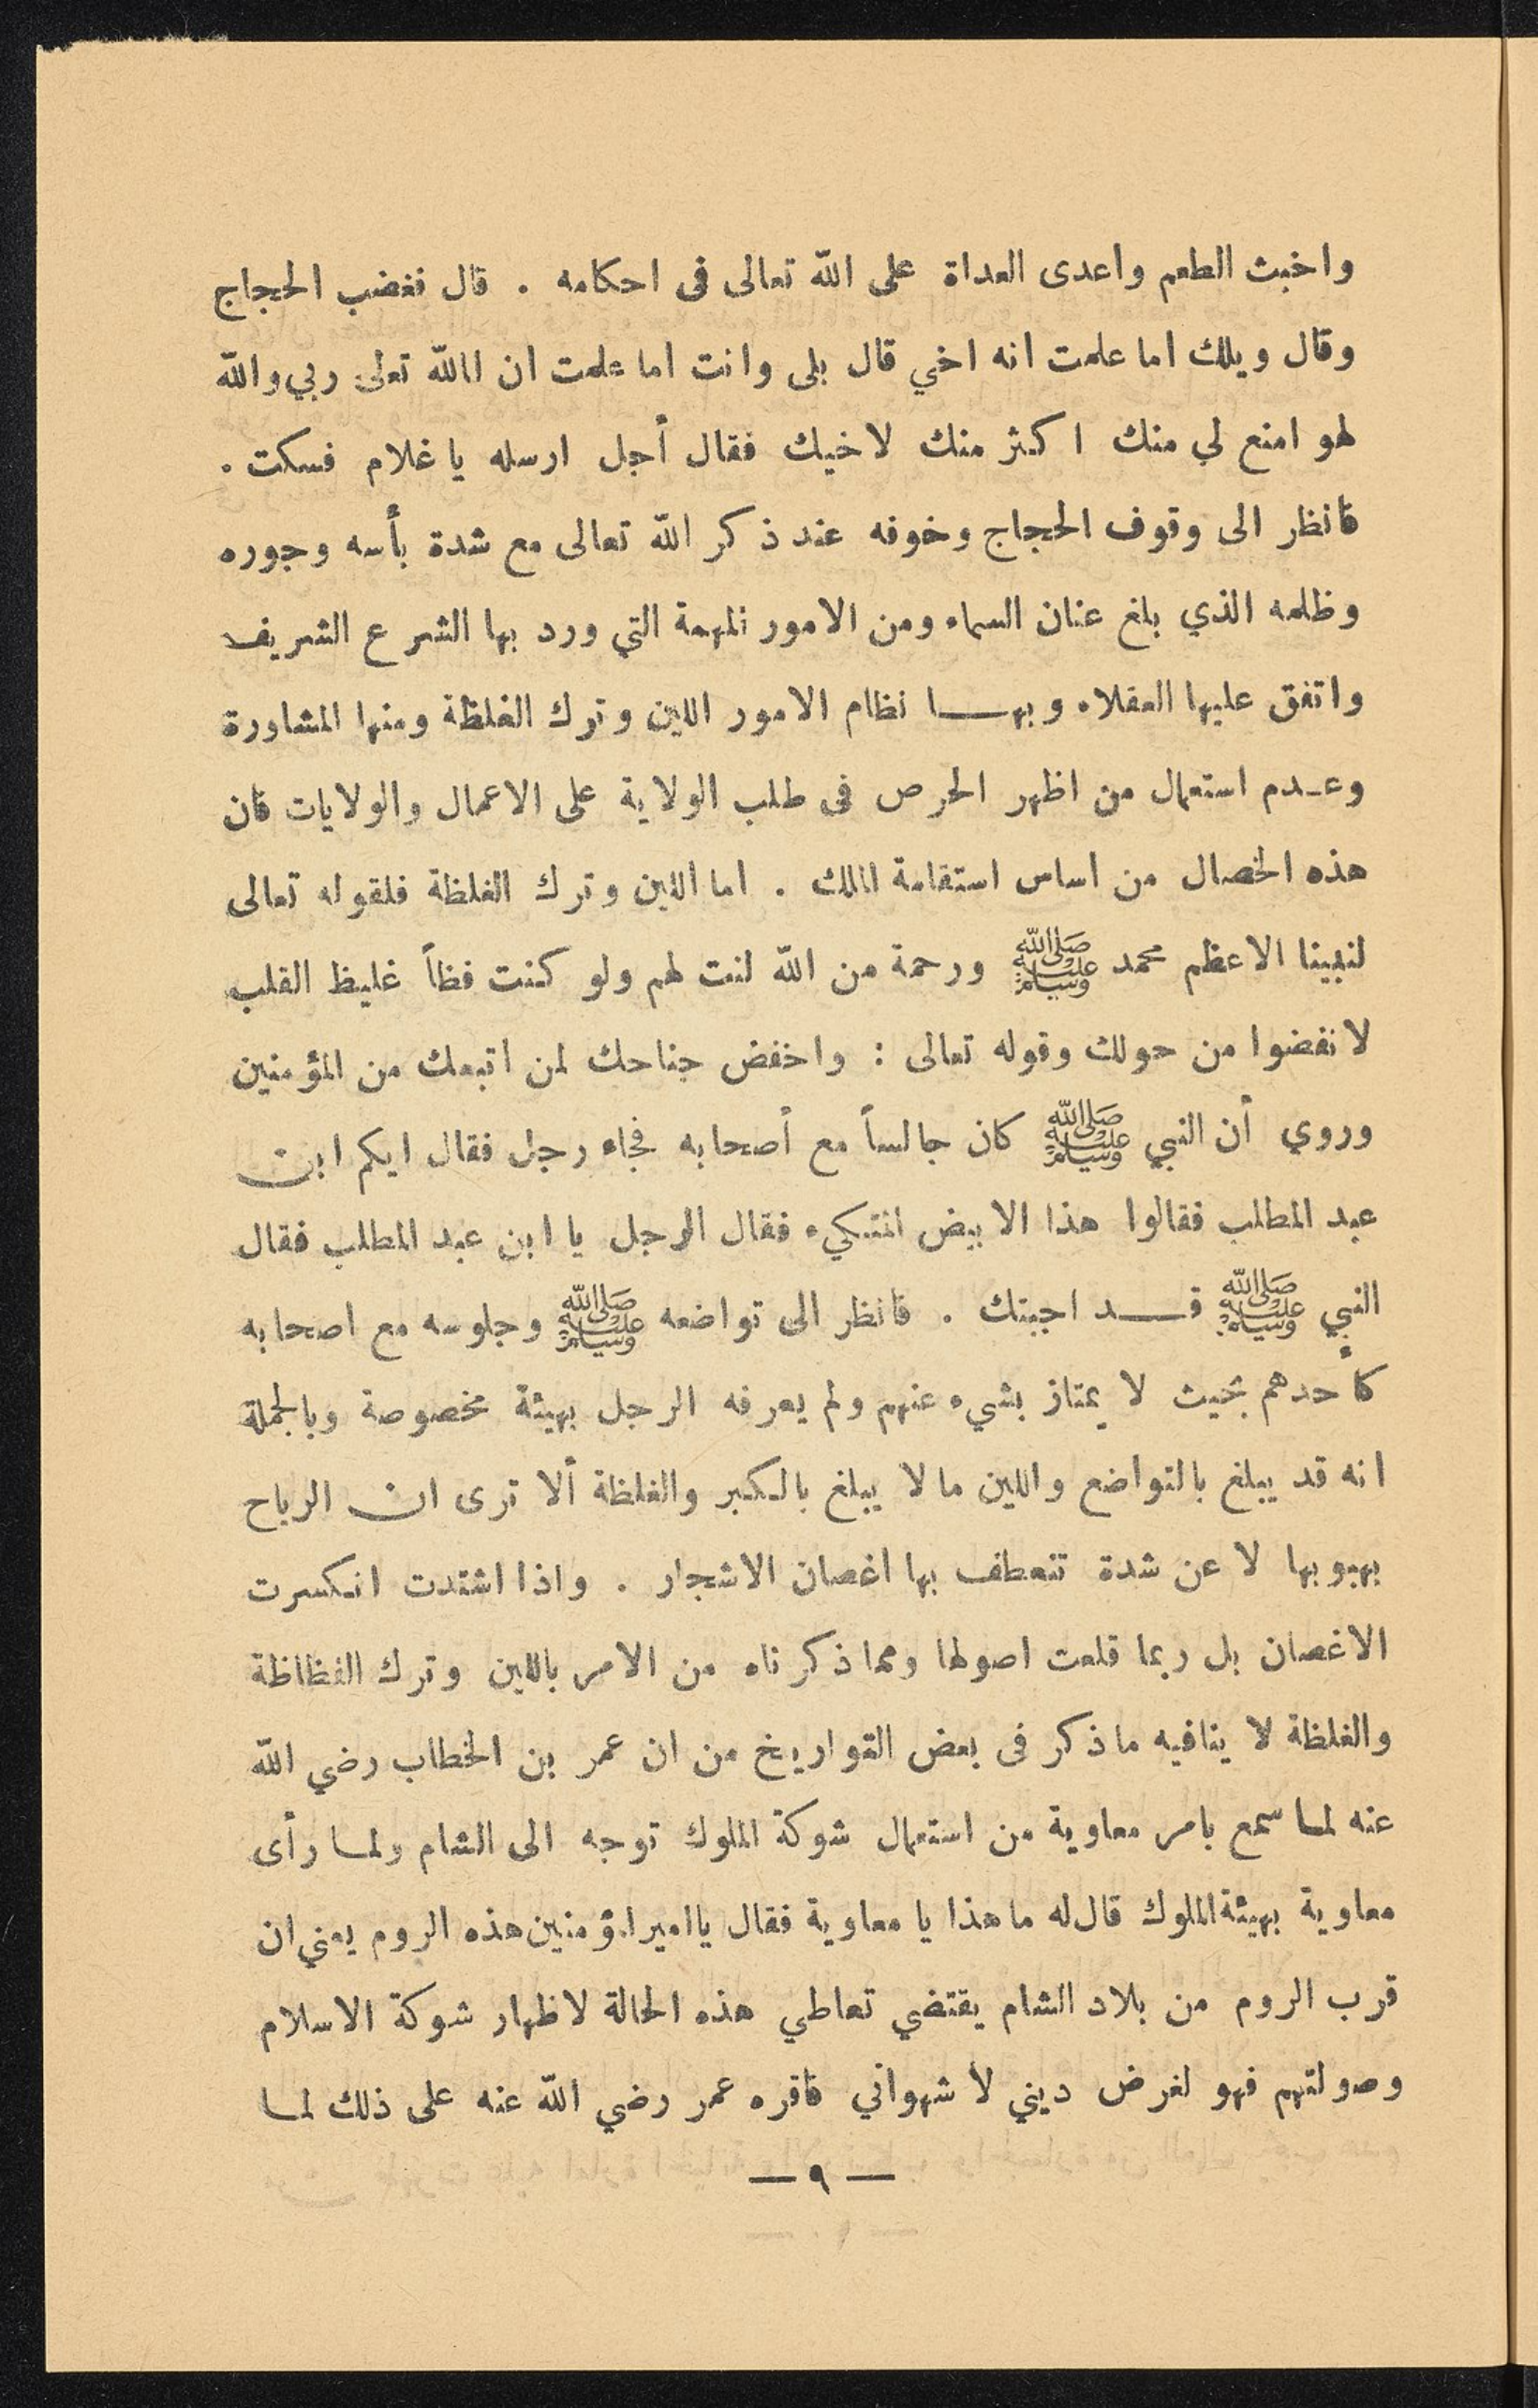 واخبث الطعم واعدى العداة على الله تعالى فى احكامه . قال فغضب الحجاج
وقال ويلك اما علمت انه اخي قال بلى وانت اما علمت ان الله تعالى ربي والله
لهو امنع لي منك اكثر منك لاخيك فقال أجل ارسله يا غلام فسكت .
فانظر الى وقوف الحجاج وخوفه عند ذكر الله تعالى مع شدة بأسه وجوره
وظلمه الذي بلغ عنان السماء ومن الامور المهمة التي ورد بها الشرع الشريف
واتفق عليها العقلاء وبهـــا نظام الامور اللين وترك الغلظة ومنها المشاورة
وعـدم استعمال من اظهر الحرص فى طلب الولاية على الاعمال والولايات فان
هذه الخصال من اساس استقامة الملك . اما اللين وترك الغلظة فلقوله تعالى
لنبينا الاعظم محمد ﷺ ورحمة من الله لنت لهم ولو كنت فظاً غليظ القلب
لانفضوا من حولك وقوله تعالى : واخفض جناحك لمن اتبعك من المؤمنين
وروي أن النبي ﷺ كان جالساً مع أصحابه فجاء رجل فقال ايكم ابن
عبد المطلب فقالوا هذا الابيض المتكيء فقال الرجل يا ابن عبد المطلب فقال
النبي ﷺ قـــد اجبتك . فانظر الى تواضعه ﷺ وجلوسه مع اصحابه
كأحدهم بحيث لا يمتاز بشيء عنهم ولم يعرفه الرجل بهيئة مخصوصة وبالجملة
انه قد يبلغ بالتواضع واللين ما لا يبلغ بالكبر والغلظة ألا ترى ان الرياح
بهبوبها لا عن شدة تنعطف بها اغصان الاشجار . واذا اشتدت انكسرت
الاغصان بل ربما قلعت اصولها ومما ذكرناه من الامر باللين وترك الفظاظة
والغلظة لا ينافيه ما ذكر فى بعض التواريخ من ان عمر بن الخطاب رضي الله
عنه لما سمع بامر معاوية من استعمال شوكة الملوك توجه الى الشام ولما رأى
معاوية بهيئة الملوك قال له ما هذا يا معاوية فقال يا امير المؤمنين هذه الروم يعني ان
قرب الروم من بلاد الشام يقتضي تعاطي هذه الحالة لاظهار شوكة الاسلام
وصولتهم فهو لغرض ديني لا شهواني فاقره عمر رضي الله عنه على ذلك لما
— ٩ —